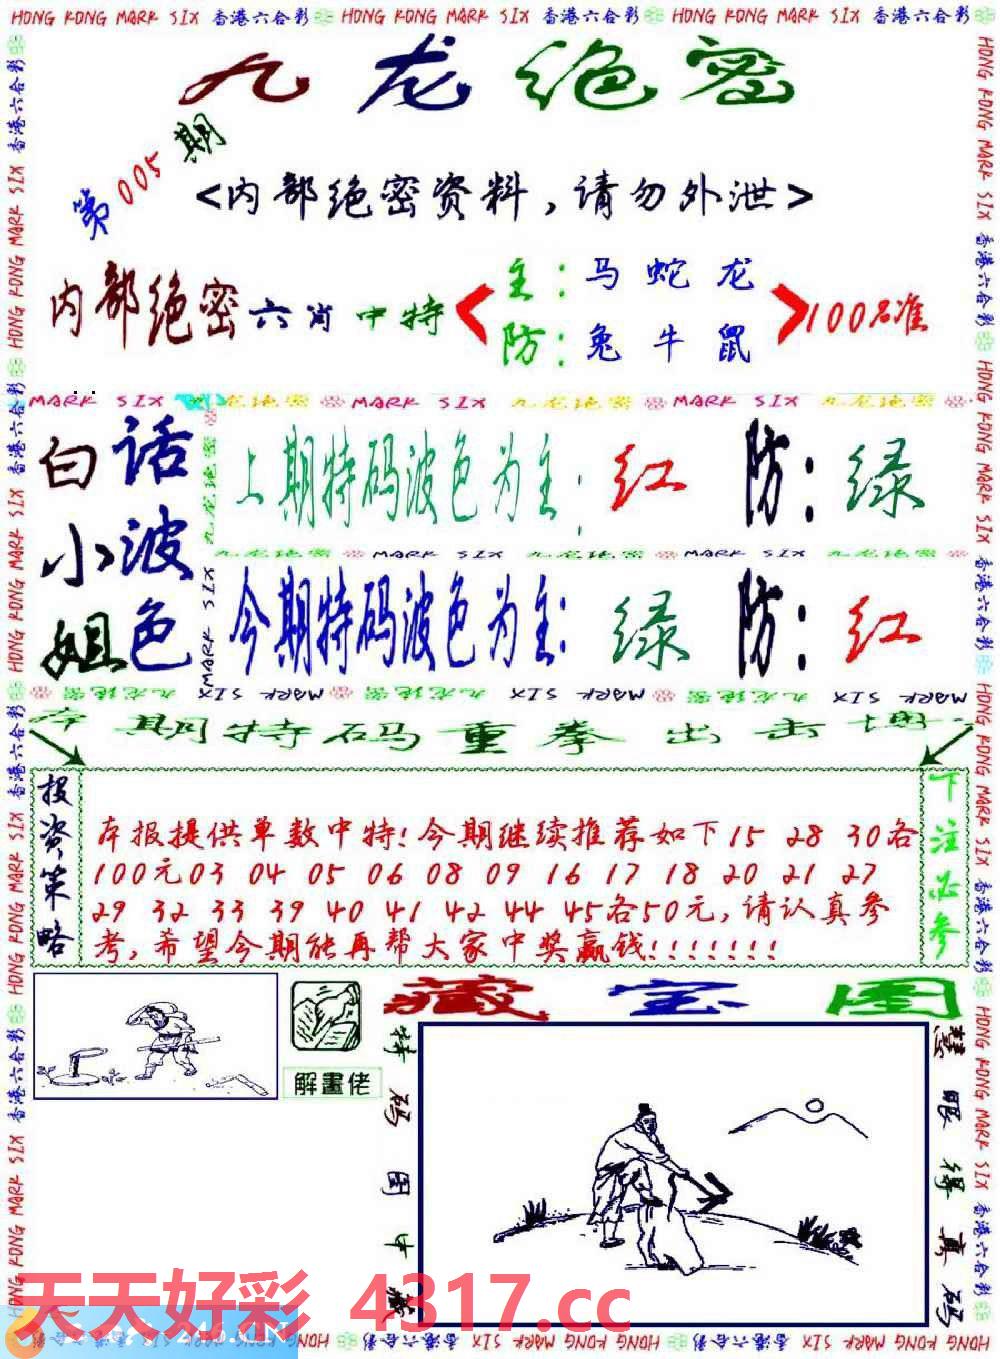 HONG KONG MARK SIX 香港六合彩 HONG KONG MARK SIX 香港六合彩 HONG KONG MARK SIX 香港六合彩
九龙绝密
第005期
<内部绝密资料,请勿外泄>
内部绝密六肖中特
主:马蛇龙
防:兔牛鼠
100%准
MARK SIX 九龙绝密 MARK SIX 九龙绝密 MARK SIX 九龙绝密
白小姐
话波色
上期特码波色为主:红 防:绿
九龙绝密 MARK SIX 九龙绝密 MARK SIX 九龙绝密
今期特码波色为主:绿 防:红
本期特码重拳出击
投资策略
本报提供单数中特!今期继续推荐如下15 28 30各
100元03 04 05 06 08 09 16 17 18 20 21 27
29 32 33 39 40 41 42 44 45各50元,请认真参
考,希望今期能再帮大家中奖赢钱!!!!!!!
下注必参
解畫佬
藏宝图
特码图中藏
慧眼得真码
天天好彩 4317.cc
HONG KONG MARK SIX 香港六合彩